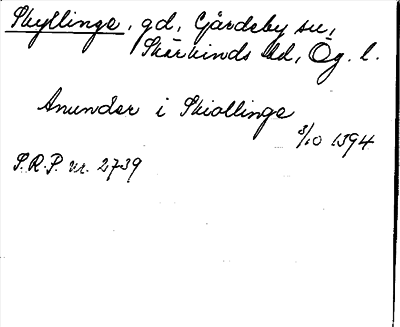 Skyllinge, gd, Gårdeby sn,
Skärkinds hd, Ög. l.
Anundær i Skiollinge
3/10 1394
S.R.P. nr. 2739